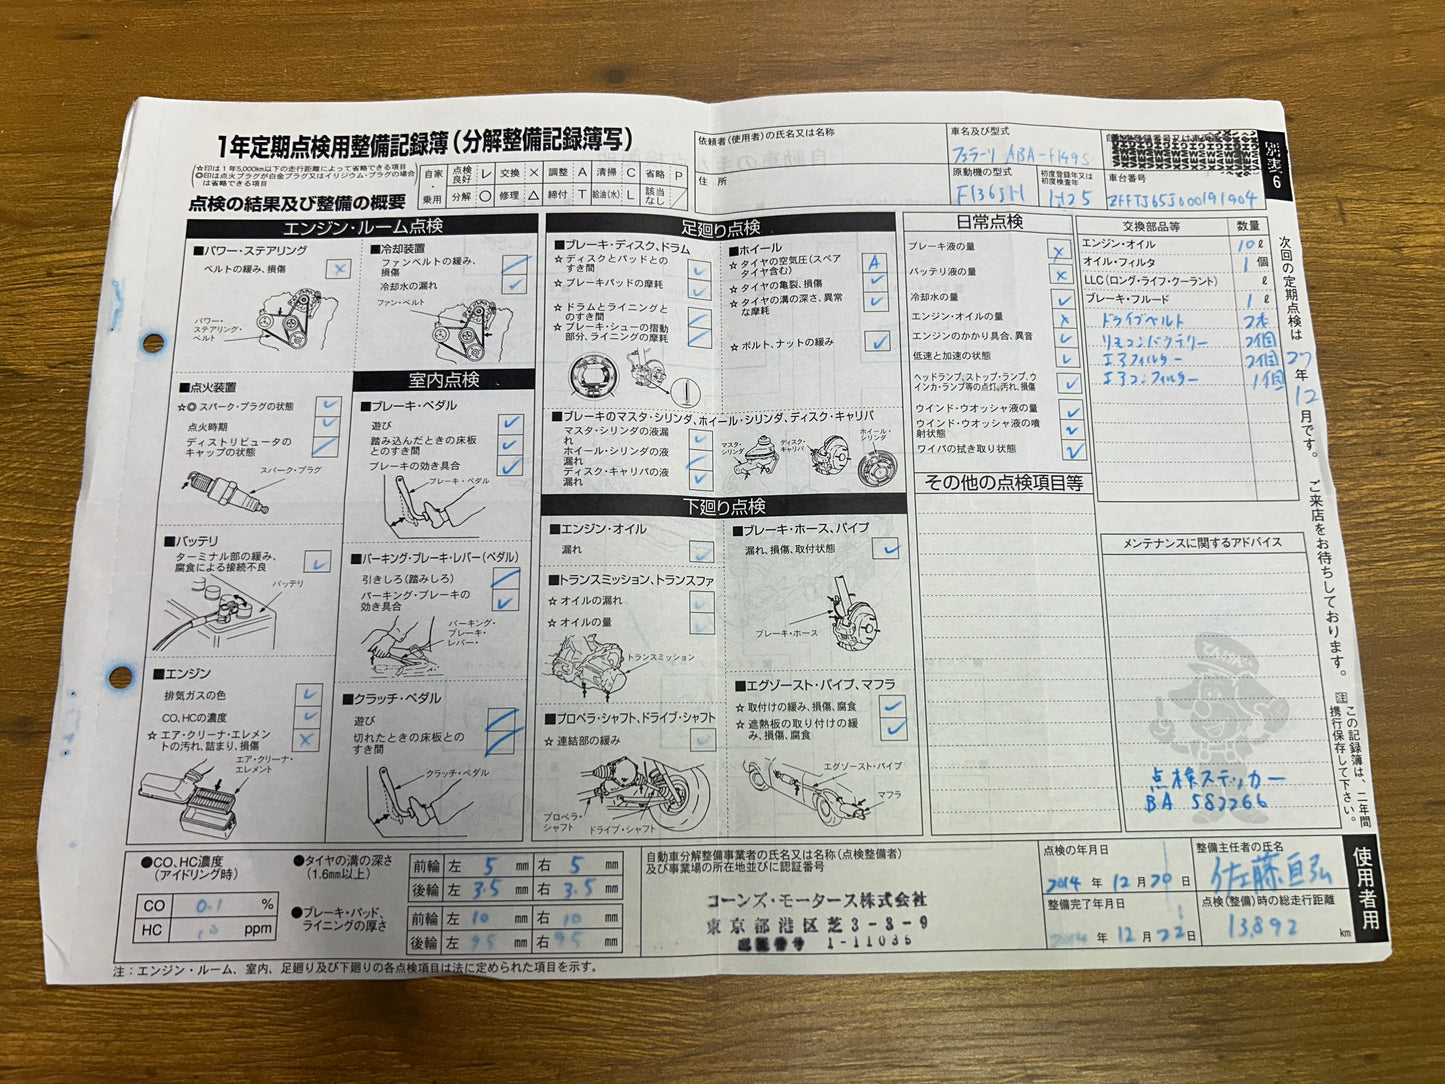 1年定期点検用整備記録簿(分解整備記録簿写)
☆印は1年5,000km以下の走行距離によって省略できる項目
◎印は点火プラグが白金プラグ又はイリジウム・プラグの場合は省略できる項目
点検の結果及び整備の概要
自家・乗用
点検良好 レ 交換 × 調整 A 清掃 C 省略 P
分解 ○ 修理 △ 締付 T 給油(水) L 該当なし /
依頼者(使用者)の氏名又は名称
住 所
車名及び型式
フェラーリ ABA-F149S
原動機の型式
F136JH
初度登録年又は初度検査年
H25
車台番号
ZFFTJ65J000191904
別表6
エンジン・ルーム点検
■パワー・ステアリング
ベルトの緩み、損傷 ×
パワー・ステアリング・ベルト
■冷却装置
ファンベルトの緩み、損傷 /
冷却水の漏れ レ
ファン・ベルト
■点火装置
☆◎スパーク・プラグの状態 レ
点火時期 レ
ディストリビュータのキャップの状態 /
スパーク・プラグ
■バッテリ
ターミナル部の緩み、腐食による接続不良 レ
バッテリ
■エンジン
排気ガスの色 レ
CO、HCの濃度 レ
☆エア・クリーナ・エレメントの汚れ、詰まり、損傷 ×
エア・クリーナ・エレメント
室内点検
■ブレーキ・ペダル
遊び レ
踏み込んだときの床板とのすき間 レ
ブレーキの効き具合 レ
ブレーキ・ペダル
■パーキング・ブレーキ・レバー(ペダル)
引きしろ(踏みしろ) /
パーキング・ブレーキの効き具合 レ
パーキング・ブレーキ・レバー
■クラッチ・ペダル
遊び /
切れたときの床板とのすき間 /
クラッチ・ペダル
足廻り点検
■ブレーキ・ディスク、ドラム
☆ディスクとパッドとのすき間 レ
☆ブレーキパッドの摩耗 レ
☆ドラムとライニングとのすき間 /
☆ブレーキ・シューの摺動部分、ライニングの摩耗 /
■ホイール
☆タイヤの空気圧(スペアタイヤ含む) A
☆タイヤの亀裂、損傷 レ
☆タイヤの溝の深さ、異常な摩耗 レ
☆ボルト、ナットの緩み レ
■ブレーキのマスタ・シリンダ、ホイール・シリンダ、ディスク・キャリパ
マスタ・シリンダの液漏れ レ
ホイール・シリンダの液漏れ /
ディスク・キャリパの液漏れ レ
マスタ・シリンダ
ディスク・キャリパ
ホイール・シリンダ
下廻り点検
■エンジン・オイル
漏れ レ
■トランスミッション、トランスファ
☆オイルの漏れ レ
☆オイルの量 レ
トランスミッション
■プロペラ・シャフト、ドライブ・シャフト
☆連結部の緩み レ
プロペラ・シャフト
ドライブ・シャフト
■ブレーキ・ホース、パイプ
漏れ、損傷、取付状態 レ
ブレーキ・ホース
■エグゾースト・パイプ、マフラ
☆取付けの緩み、損傷、腐食 レ
☆遮熱板の取り付けの緩み、損傷、腐食 レ
エグゾースト・パイプ
マフラ
日常点検
ブレーキ液の量 ×
バッテリ液の量 ×
冷却水の量 レ
エンジン・オイルの量 ×
エンジンのかかり具合、異音 レ
低速と加速の状態 レ
ヘッドランプ、ストップ・ランプ、ウインカ・ランプ等の点灯。汚れ、損傷 レ
ウインド・ウオッシャ液の量 レ
ウインド・ウオッシャ液の噴射状態 レ
ワイパの拭き取り状態 レ
その他の点検項目等
交換部品等 数量
エンジン・オイル 10ℓ
オイル・フィルタ 1個
LLC(ロング・ライフ・クーラント) ℓ
ブレーキ・フルード 1ℓ
ドライブベルト 2本
リモコンバッテリー 2個
エアフィルター 2個
エアコンフィルター 1個
メンテナンスに関するアドバイス
てんけんくん
点検ステッカー
BA 582266
次回の定期点検は27年12月です。ご来店をお待ちしております。
注 この記録簿は、二年間携行保存して下さい。
使用者用
●CO、HC濃度(アイドリング時)
CO 0.1 %
HC ppm
●タイヤの溝の深さ(1.6mm以上)
前輪 左 5 mm 右 5 mm
後輪 左 3.5 mm 右 3.5 mm
●ブレーキ・パッド、ライニングの厚さ
前輪 左 10 mm 右 10 mm
後輪 左 9.5 mm 右 9.5 mm
自動車分解整備事業者の氏名又は名称(点検整備者)及び事業場の所在地並びに認証番号
コーンズ・モータース株式会社
東京都港区芝3-8-9
認証番号 1-11035
点検の年月日
2014年12月20日
整備完了年月日
2014年12月22日
整備主任者の氏名
佐藤直弘
点検(整備)時の総走行距離
13,892 km
注:エンジン・ルーム、室内、足廻り及び下廻りの各点検項目は法に定められた項目を示す。